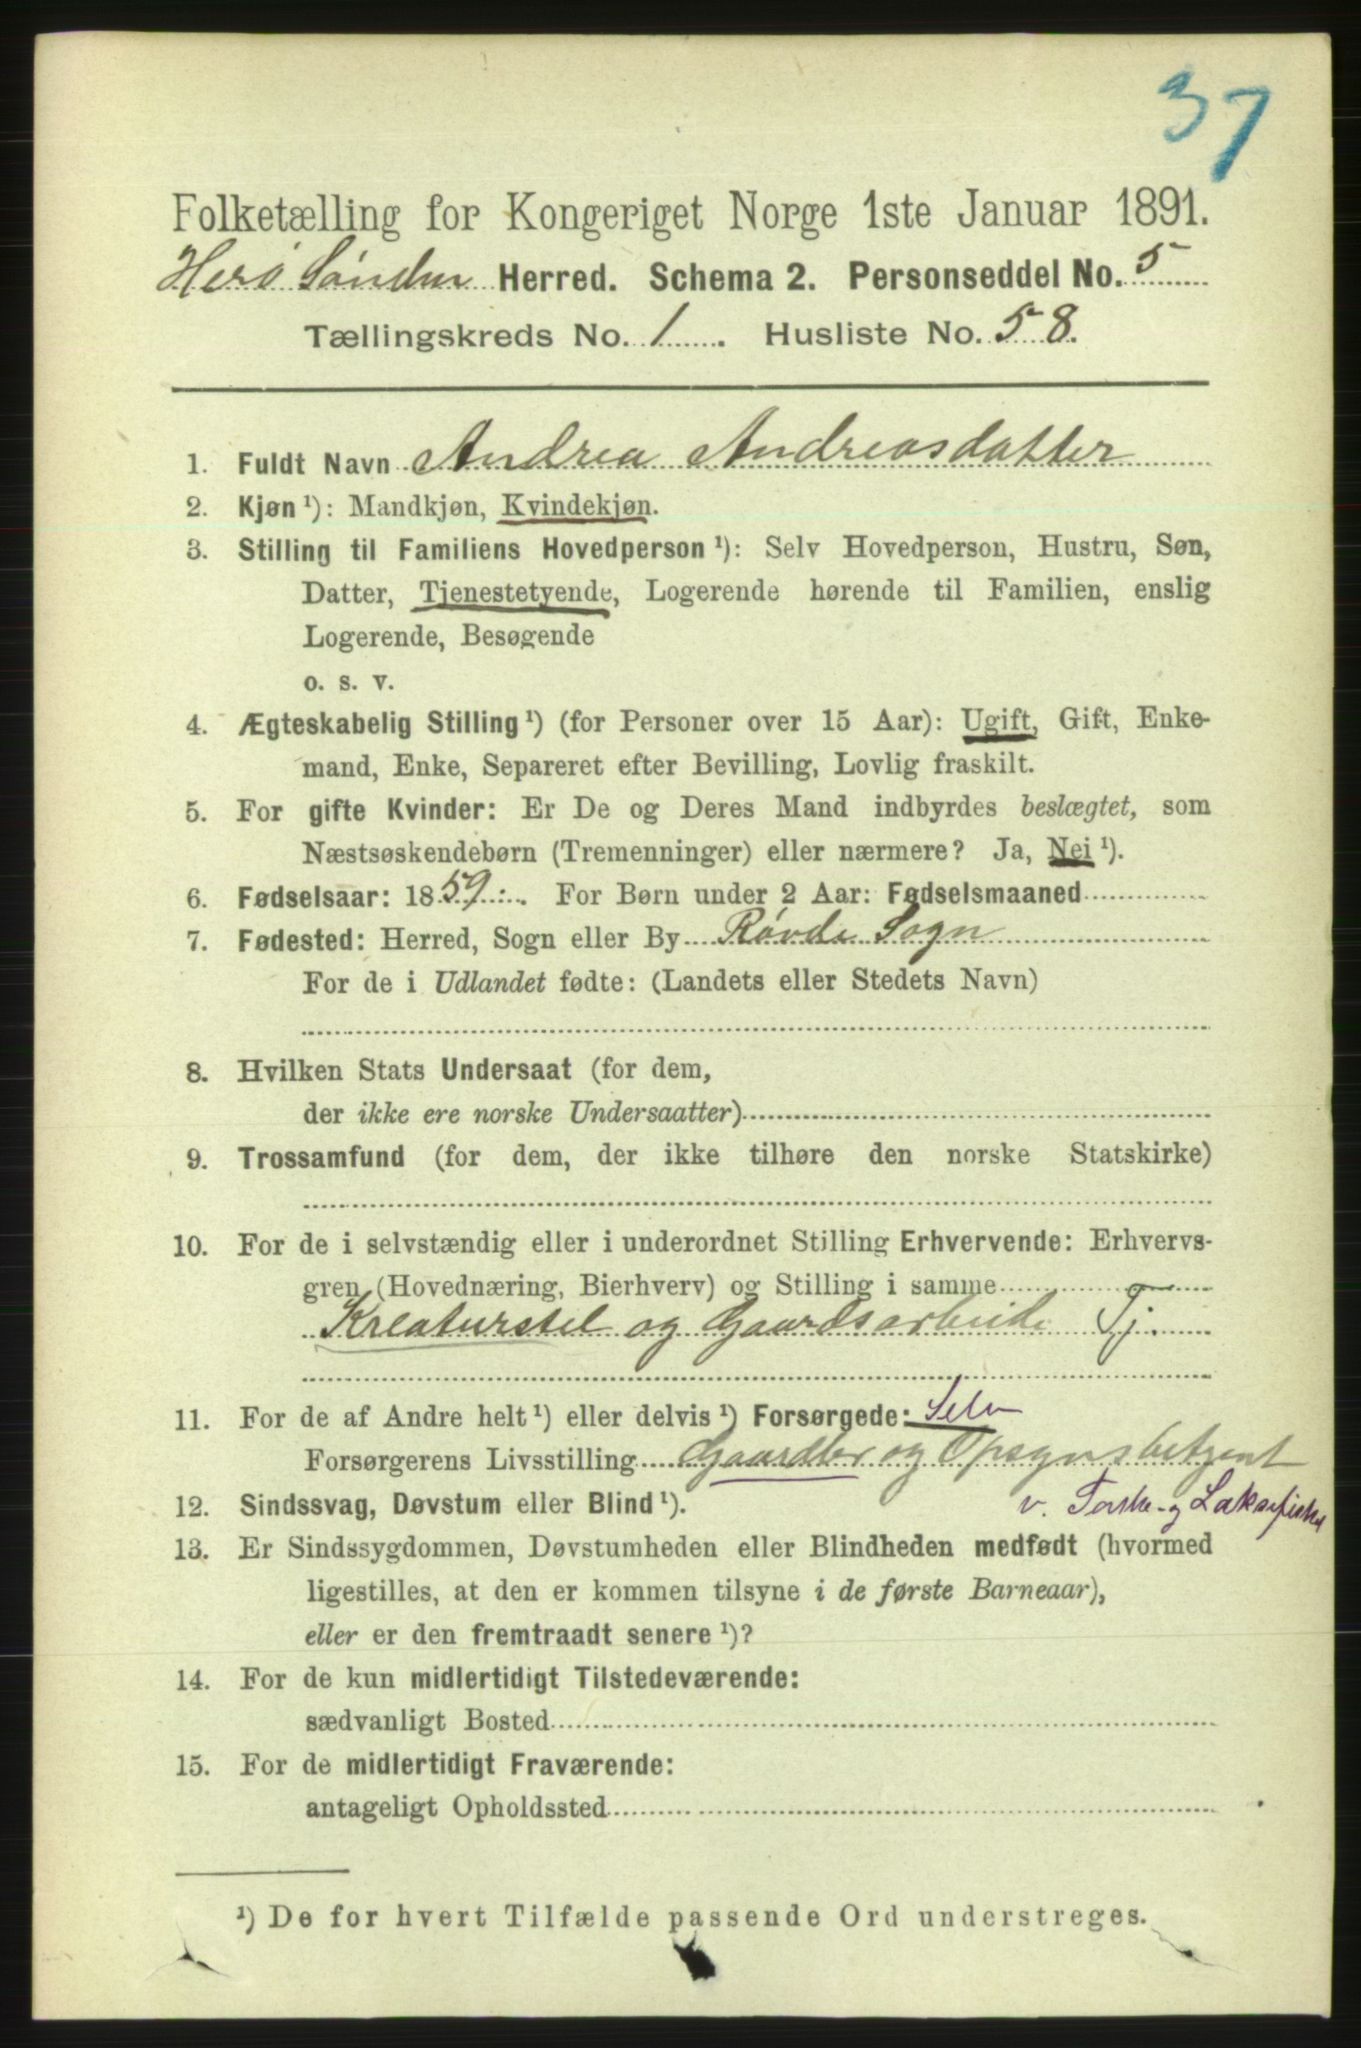 37
Folketælling for Kongeriget Norge 1ste Januar 1891.
Herø Søndre Herred. Schema 2. Personseddel No. 5
Tællingskreds No. 1. Husliste No. 58.
1. Fuldt Navn Andrea Andreasdatter
2. Kjøn ¹): Mandkjøn, Kvindekjøn.
3. Stilling til Familiens Hovedperson ¹): Selv Hovedperson, Hustru, Søn,
Datter, Tjenestetyende, Logerende hørende til Familien, enslig
Logerende, Besøgende
o. s. v.
4. Ægteskabelig Stilling ¹) (for Personer over 15 Aar): Ugift, Gift, Enke-
mand, Enke, Separeret efter Bevilling, Lovlig fraskilt.
5. For gifte Kvinder: Er De og Deres Mand indbyrdes beslægtet, som
Næstsøskendebørn (Tremenninger) eller nærmere? Ja, Nei ¹).
6. Fødselsaar: 1859. For Børn under 2 Aar: Fødselsmaaned
7. Fødested: Herred, Sogn eller By Røvde Sogn
For de i Udlandet fødte: (Landets eller Stedets Navn)
8. Hvilken Stats Undersaat (for dem,
der ikke ere norske Undersaatter)
9. Trossamfund (for dem, der ikke tilhøre den norske Statskirke)
10. For de i selvstændig eller i underordnet Stilling Erhvervende: Erhvervs-
gren (Hovednæring, Bierhverv) og Stilling i samme
Kreaturstel og Gaardsarbeide Tj.
11. For de af Andre helt ¹) eller delvis ¹) Forsørgede: Selv
Forsørgerens Livsstilling Gaardbr og Opsynsbetjent
v. Torske- og Laksefisket
12. Sindssvag, Døvstum eller Blind ¹).
13. Er Sindssygdommen, Døvstumheden eller Blindheden medfødt (hvormed
ligestilles, at den er kommen tilsyne i de første Barneaar),
eller er den fremtraadt senere ¹)?
14. For de kun midlertidigt Tilstedeværende:
sædvanligt Bosted
15. For de midlertidigt Fraværende:
antageligt Opholdssted
¹) De for hvert Tilfælde passende Ord understreges.